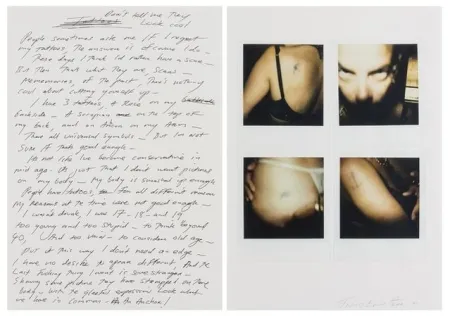 Don't tell me they
Look cool
People sometimes ask me If I regret
my tattoos. The answer is of course I do –
These days I think I'd rather have a scar –
But then thats what they are, scars –
Memories of the past. There's nothing
cool about cutting yourself up –
I have 3 tattoos, a Rose on my
backside – A scorpion on the top of
my back, and an Anchor on my Arm –
There all universal symbols – But Im not
sure if thats good enough –
Its not like Ive become conservative in
mid age. Its just that I dont want pictures
on my body – My body is busy enough
People have tattoos, for all different reasons
my reasons at the time were not good enough –
I wasnt drunk, I was 17 – 18 – and 19
too young and too stupid – to think beyond
40, And too vain – to consider old age –
put it this way I dont need an edge –
I have no desire to appear different, And the
Last fucking thing I want is some stranger –
Showing some picture they have stamped on there
body – with the gleeful expression Look what
we have in common – An Anchor!